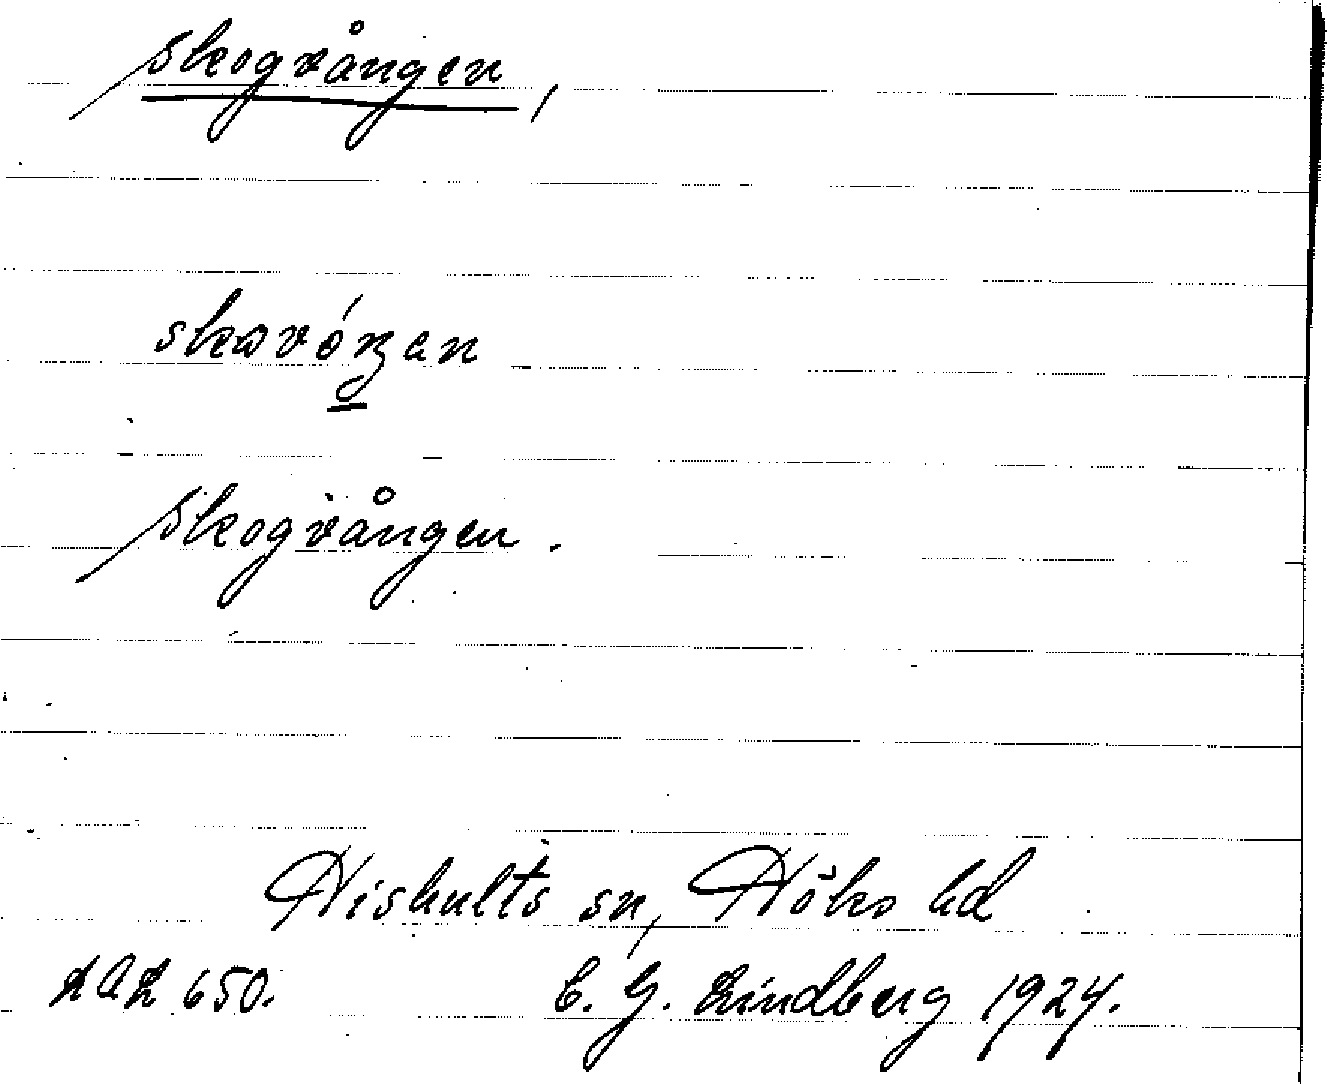 Skogvången,
skavóŋan
Skogvången.
Hishults sn, Höks hd
LAL 650.
C. G. Lindberg 1924.